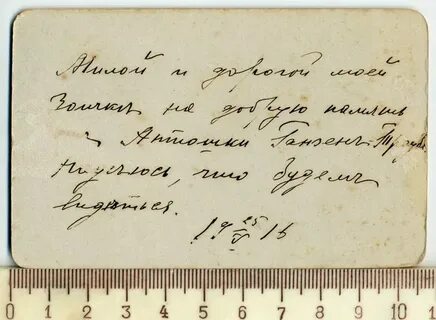 Милой и дорогой моей
Зоички на добрую память
Антошки Ганзенъ
Надѣюсь, что будемъ
видѣться.
19 25/V 15
0 1 2 3 4 5 6 7 8 9 10 1